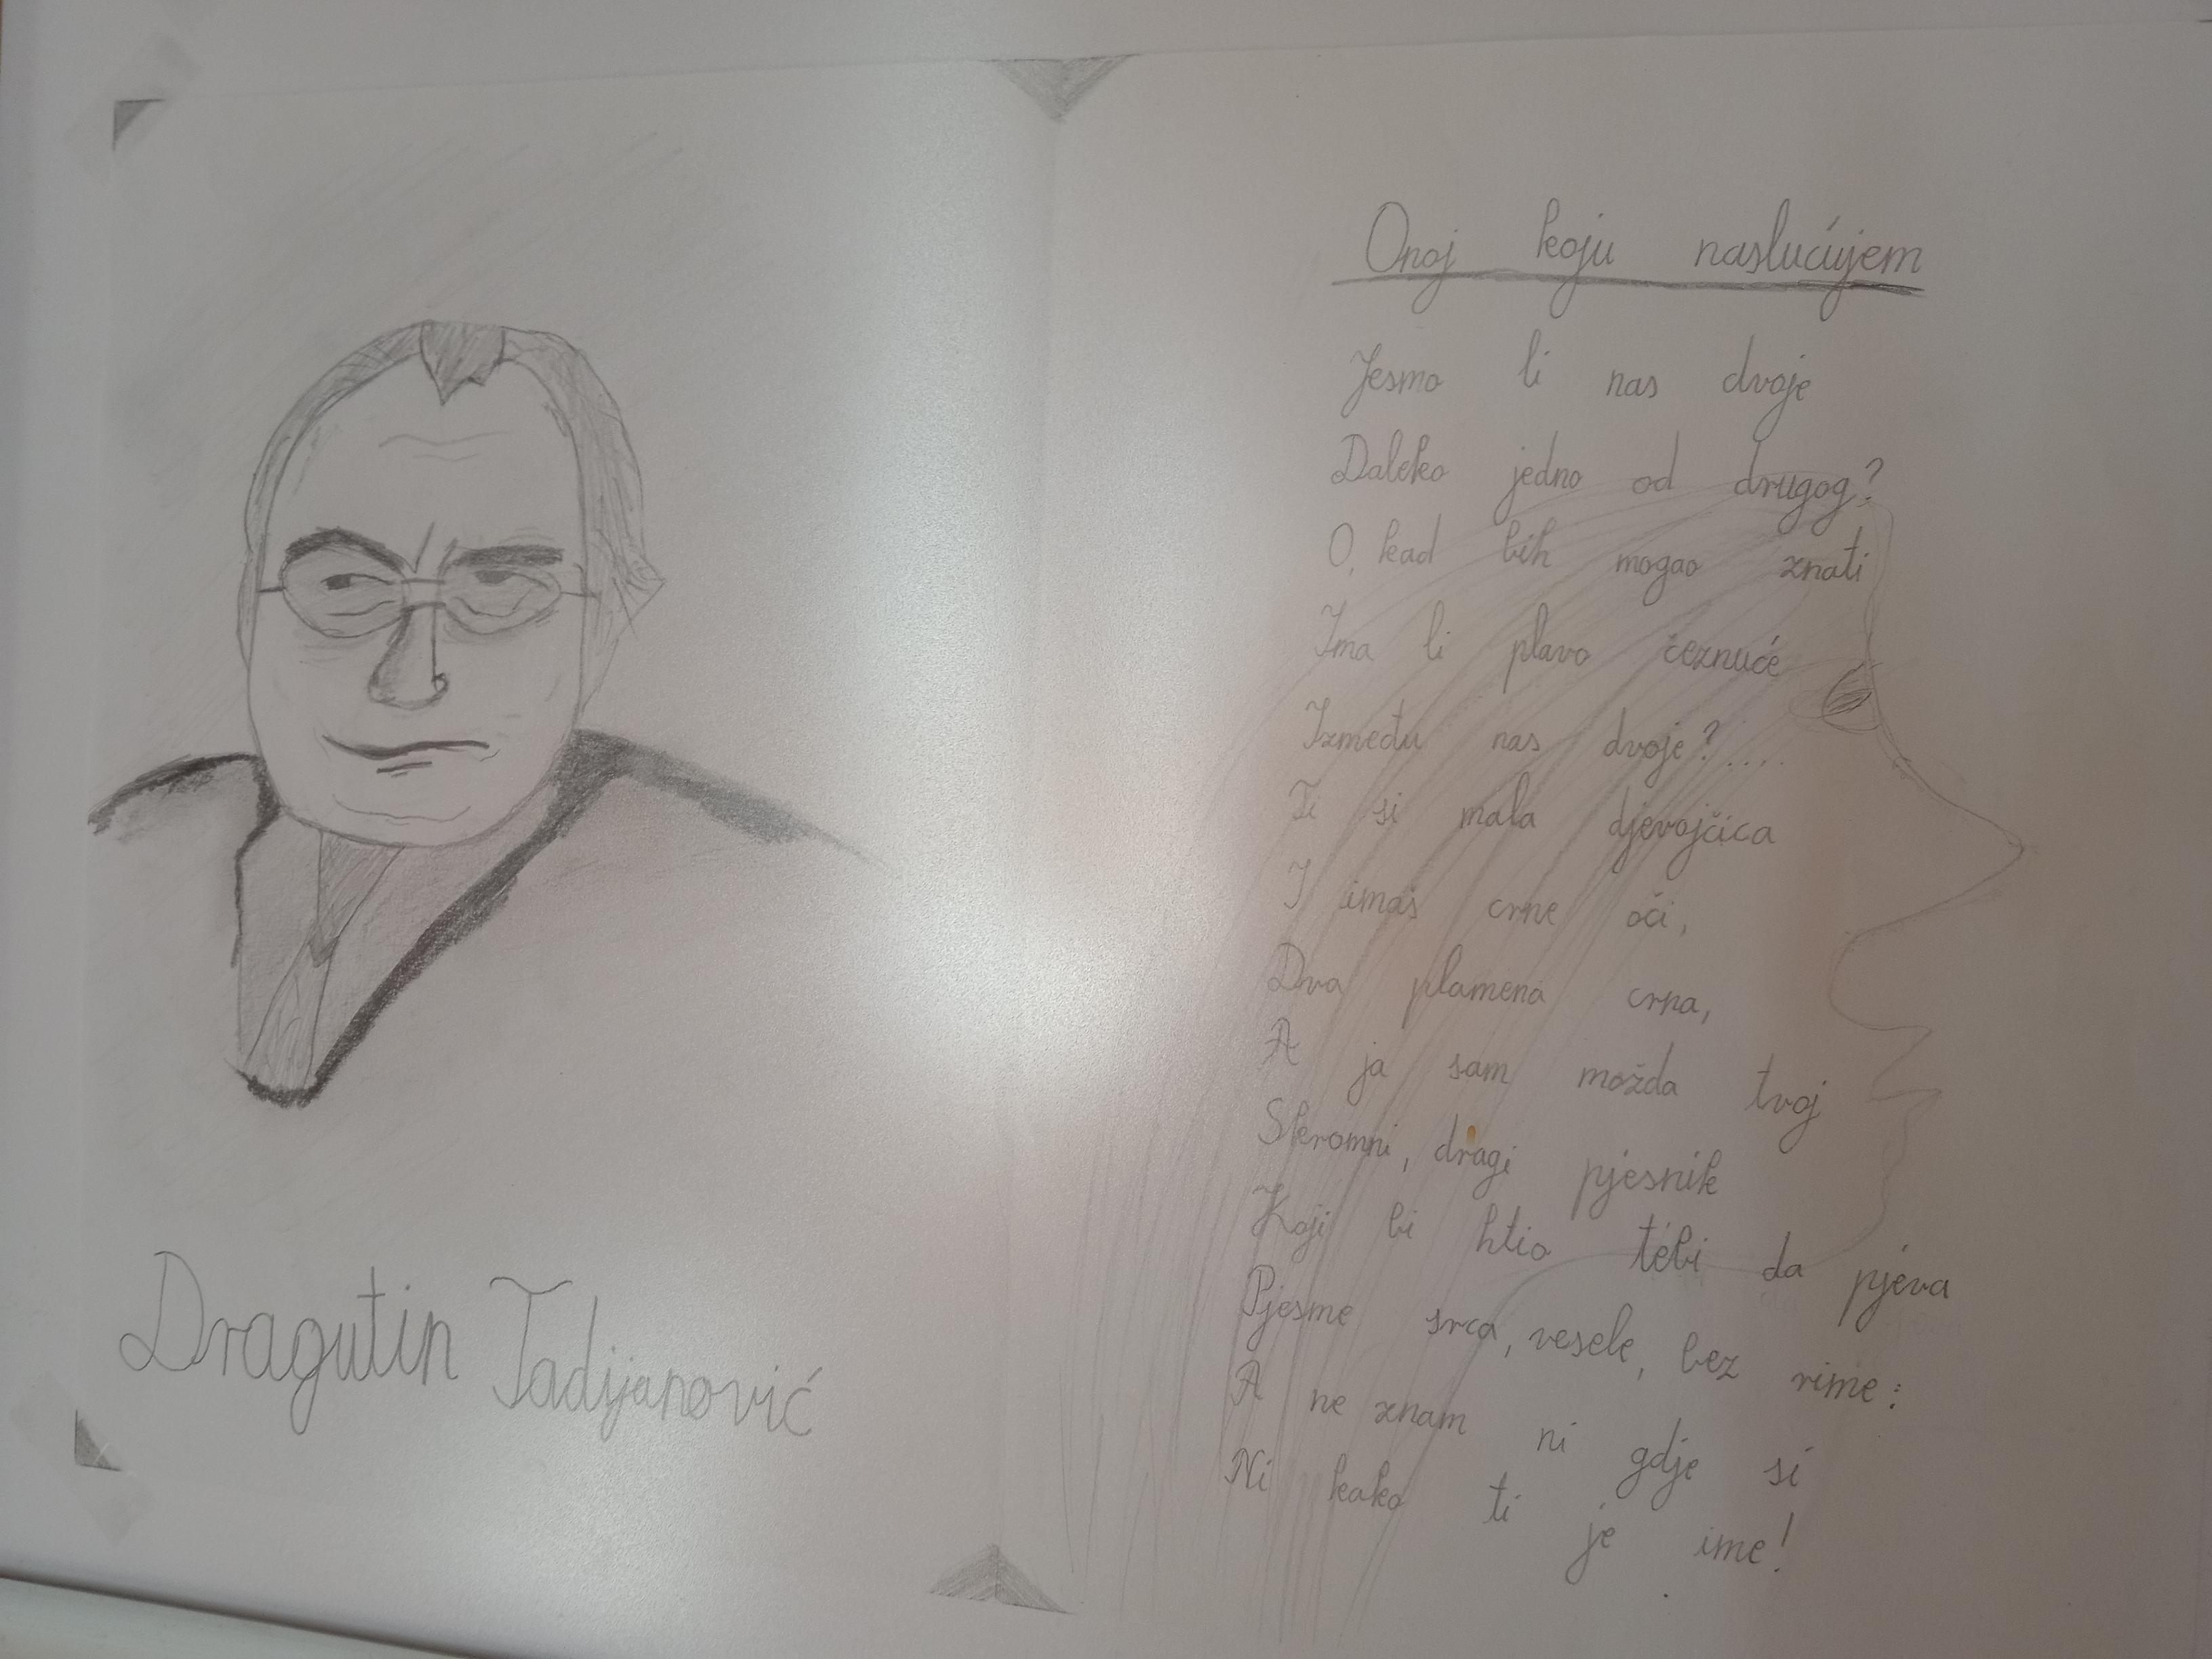 Dragutin Tadijanović
Onoj koju naslućujem
Jesmo li nas dvoje
Daleko jedno od drugog?
O, kad bih mogao znati
Ima li plavo čeznuće
Između nas dvoje?....
Ti si mala djevojčica
I imaš crne oči,
Dva plamena crna,
A ja sam možda tvoj
Skromni, dragi pjesnik
Koji bi htio tebi da pjeva
Pjesme srca, vesele, bez rime:
A ne znam ni gdje si
Ni kako ti je ime!